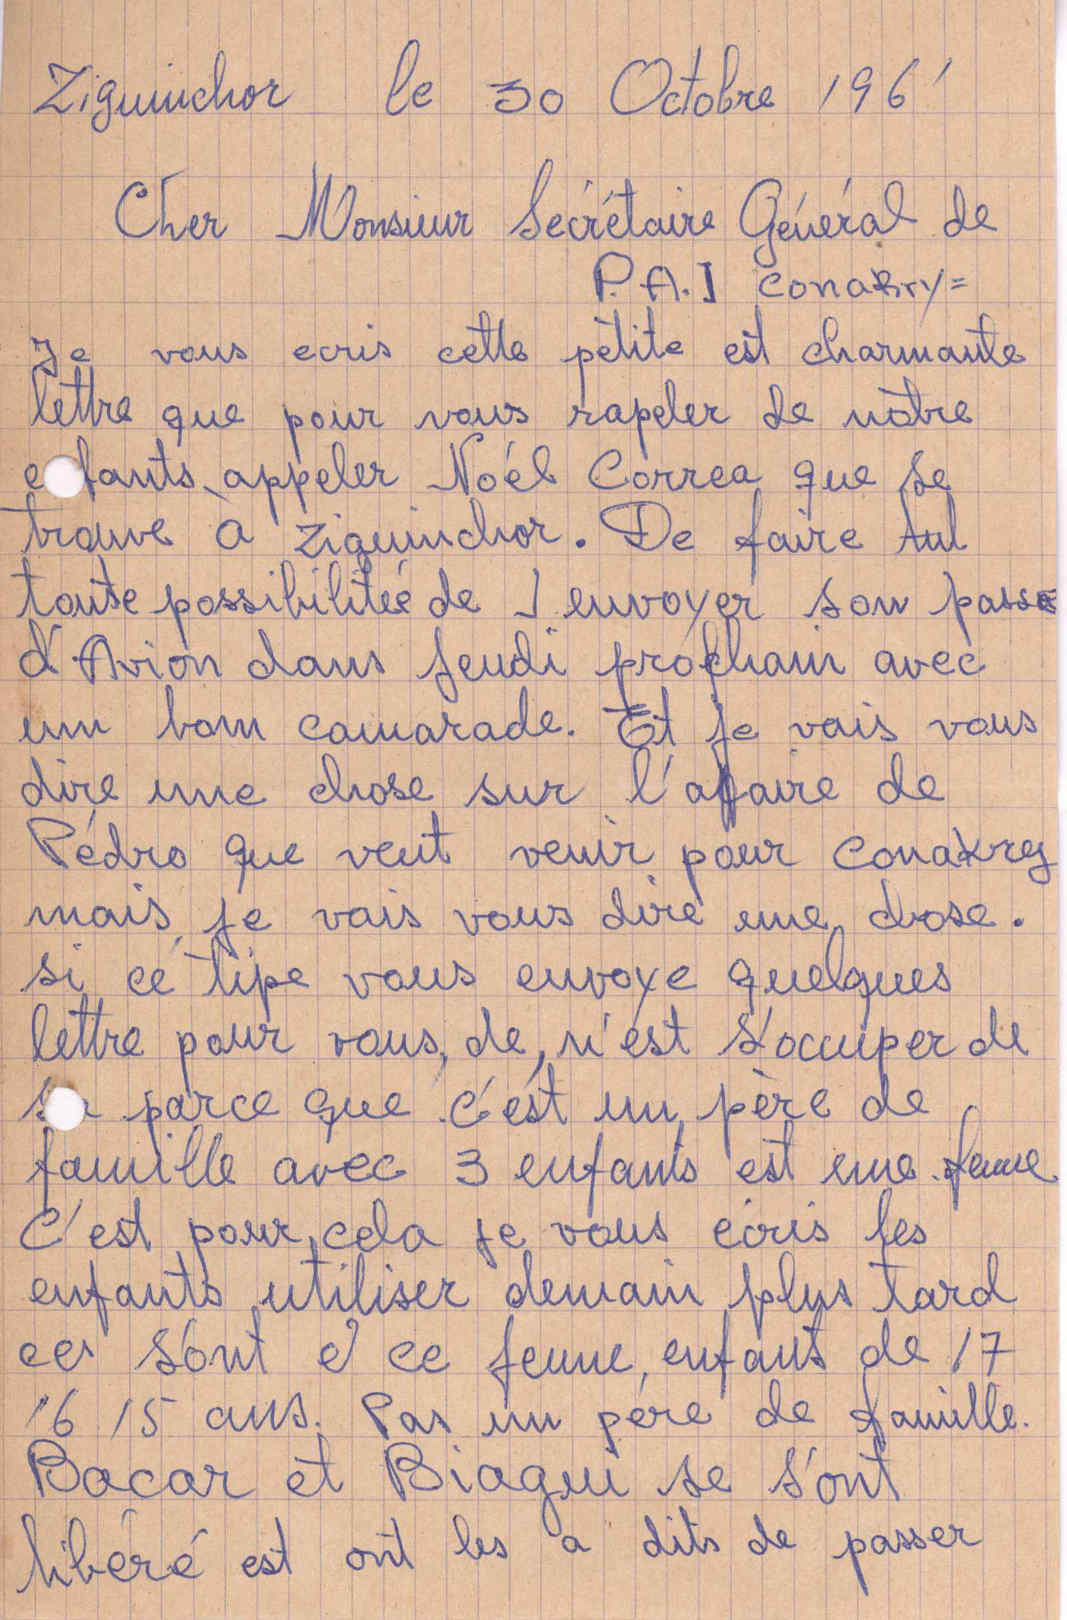 Ziguinchor le 30 Octobre 196'
Cher Monsieur Secrétaire Général de
P.A.I conakry=
Je vous ecris cette pètite est charmante
lettre que pour vous rapeler de nôtre
enfants appeler Noél Correa que se
trouve à Ziguinchor. De faire
toute possibilitée de l envoyer son passe
d'Avion dans jeudi prochain avec
un bom camarade. Et je vais vous
dire une chose sur l'affaire de
Pédro que veut venir pour Conakry
mais je vais vous dire une chose.
si cé tipe vous envoye quelques
lettre pour vous, de, n'est s'occuper de
sa parce que c'ést un père de
famille avec 3 enfants est une femme
C'est pour cela je vous ecris les
enfants utiliser demain plus tard
ces sont ce jeune, enfants de 17
16 15 ans. Pas un père de famille.
Bacar et Biagui se s'ont
libéré est ont les a dits de passer